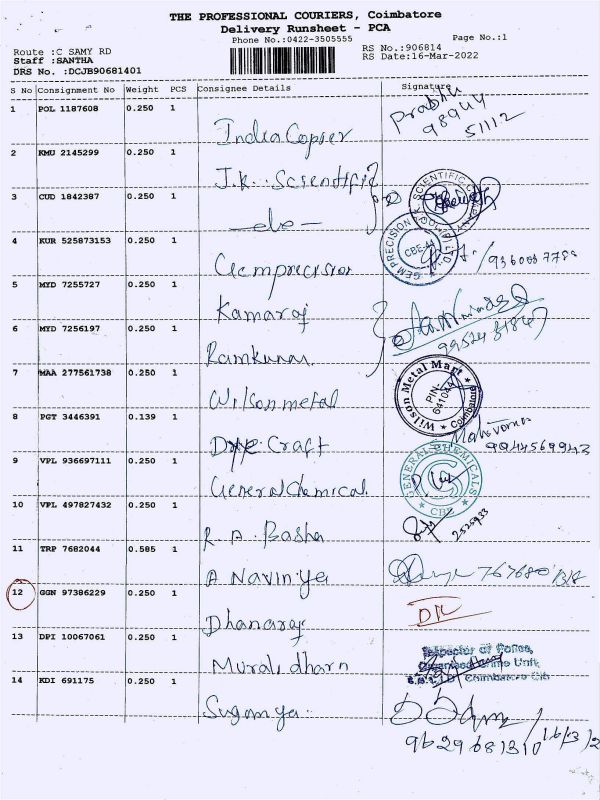 THE PROFESSIONAL COURIERS, Coimbatore
Delivery Runsheet - PCA
Phone No.:0422-3505555
Page No.:1
Route :C SAMY RD
RS No.:906814
Staff :SANTHA
RS Date:16-Mar-2022
DRS No. :DCJB90681401
S No Consignment No Weight PCS Consignee Details Signature
1 POL 1187608 0.250 1
India Copier
Prabhu
98944
51112
2 KMU 2145299 0.250 1
J.K. Scientific
SCIENTIFIC
3 CUD 1842387 0.250 1
-do-
4 KUR 525873153 0.250 1
Gem precision
GEM PRECISION
CBE-44
5 MYD 7255727 0.250 1
Kamaraj
6 MYD 7256197 0.250 1
Ramkumar
7 MAA 277561738 0.250 1
Wilson metal
Wilson Metal Mart
PIN-
Coimbatore
8 PGT 3446391 0.139 1
Craft
9944569943
9 VPL 936697111 0.250 1
General Chemical
GENERAL CHEMICALS
CBE
10 VPL 497827432 0.250 1
R. A. Basha
2525933
11 TRP 7682044 0.585 1
A Naviniya
12 GGN 97386229 0.250 1
Dhanaraj
13 DPI 10067061 0.250 1
Muralidharn
Inspector of Police,
Organised Crime Unit,
14 KDI 691175 0.250 1
Suganya
9629681310
16/3/2